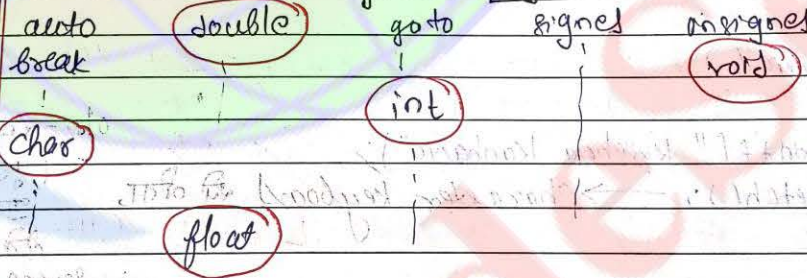 auto double goto signed unsigned
break void
int
char
float